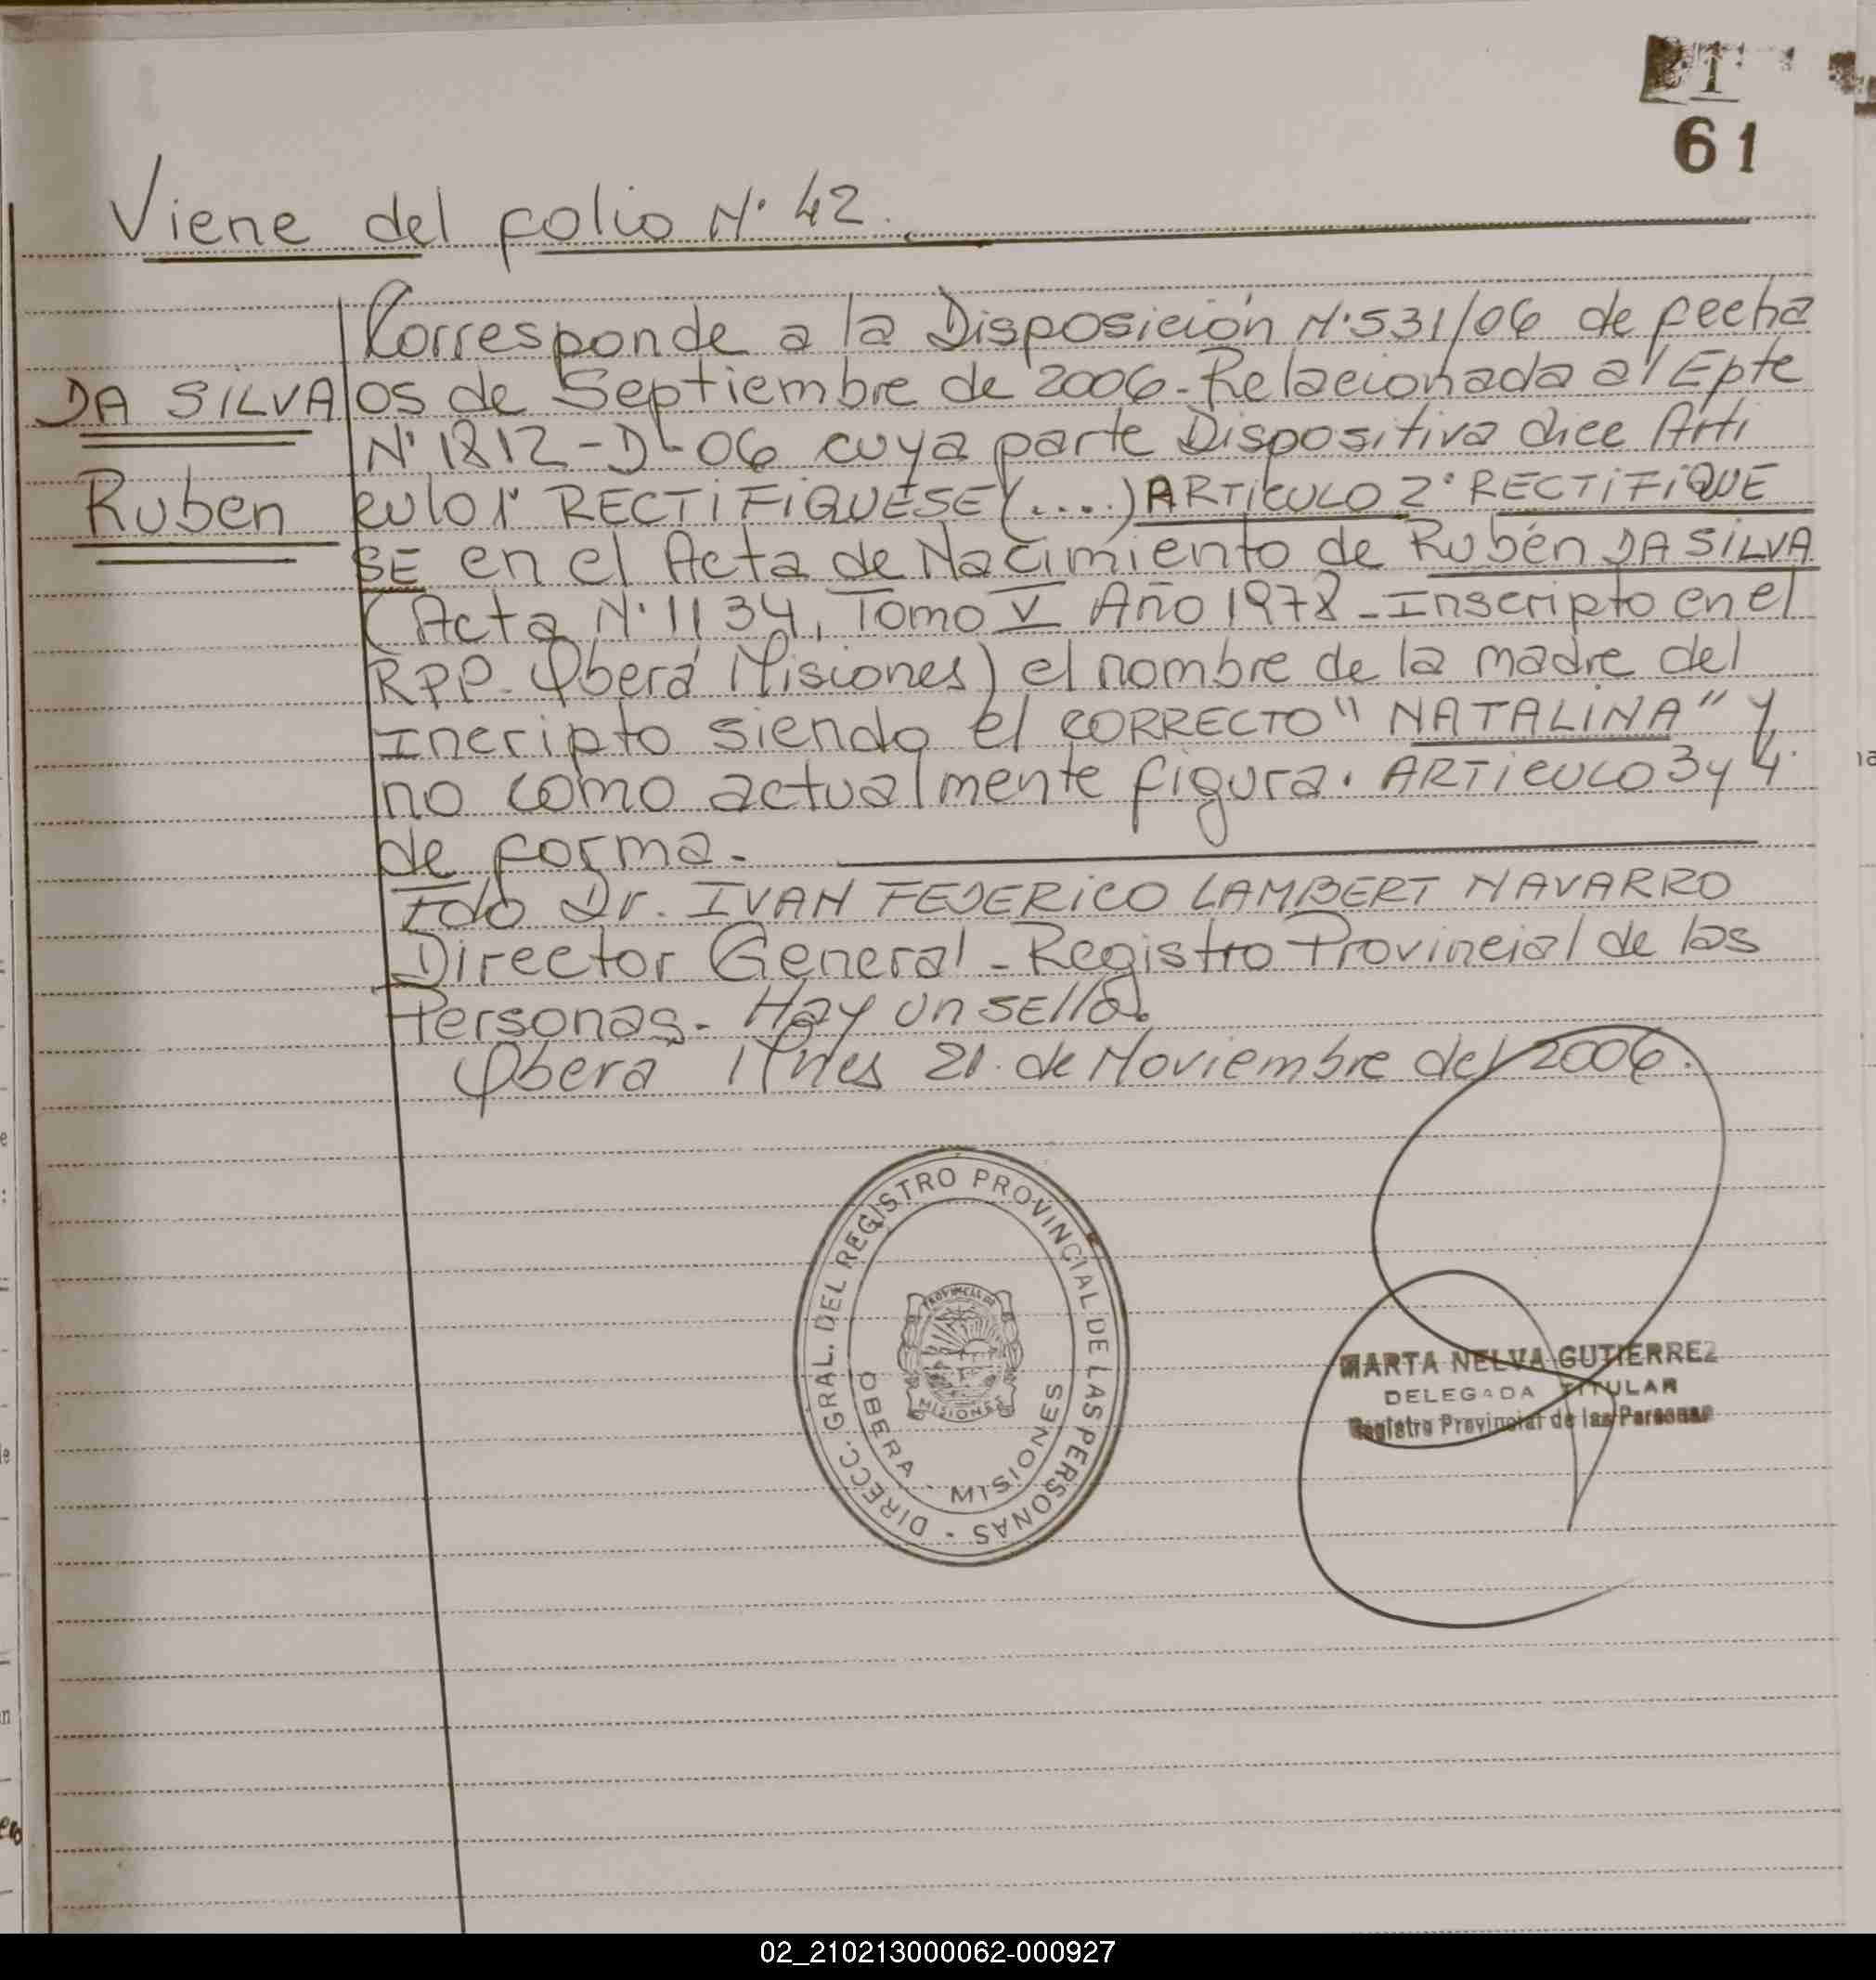 61
Viene del folio N° 42.
Corresponde a la Disposición N° 531/06 de fecha
DA SILVA 05 de Septiembre de 2006 - Relacionada al Epte
N° 1812 - D - 06 cuya parte Dispositiva dice Arti
Ruben culo 1° RECTIFIQUESE (....) ARTICULO 2° RECTIFIQUE
SE en el Acta de Nacimiento de Rubén DA SILVA
(Acta N° 1134, Tomo V Año 1978 - Inscripto en el
RPP - Oberá Misiones) el nombre de la madre del
Incripto siendo el CORRECTO "NATALINA" y
no como actualmente figura. ARTICULO 3 y 4
de forma.-
Fdo Dr. IVAN FEDERICO LAMBERT NAVARRO
Director General - Registro Provincial de las
Personas - Hay un SEllo.
Oberá Mnes 21 de Noviembre del 2006.
DIRECC. GRAL. DEL REGISTRO PROVINCIAL DE LAS PERSONAS
PROVINCIA DE
MISIONES
OBERA - MISIONES
MARTA NELVA GUTIERREZ
DELEGADA TITULAR
Registro Provincial de las Personas
02_210213000062-000927